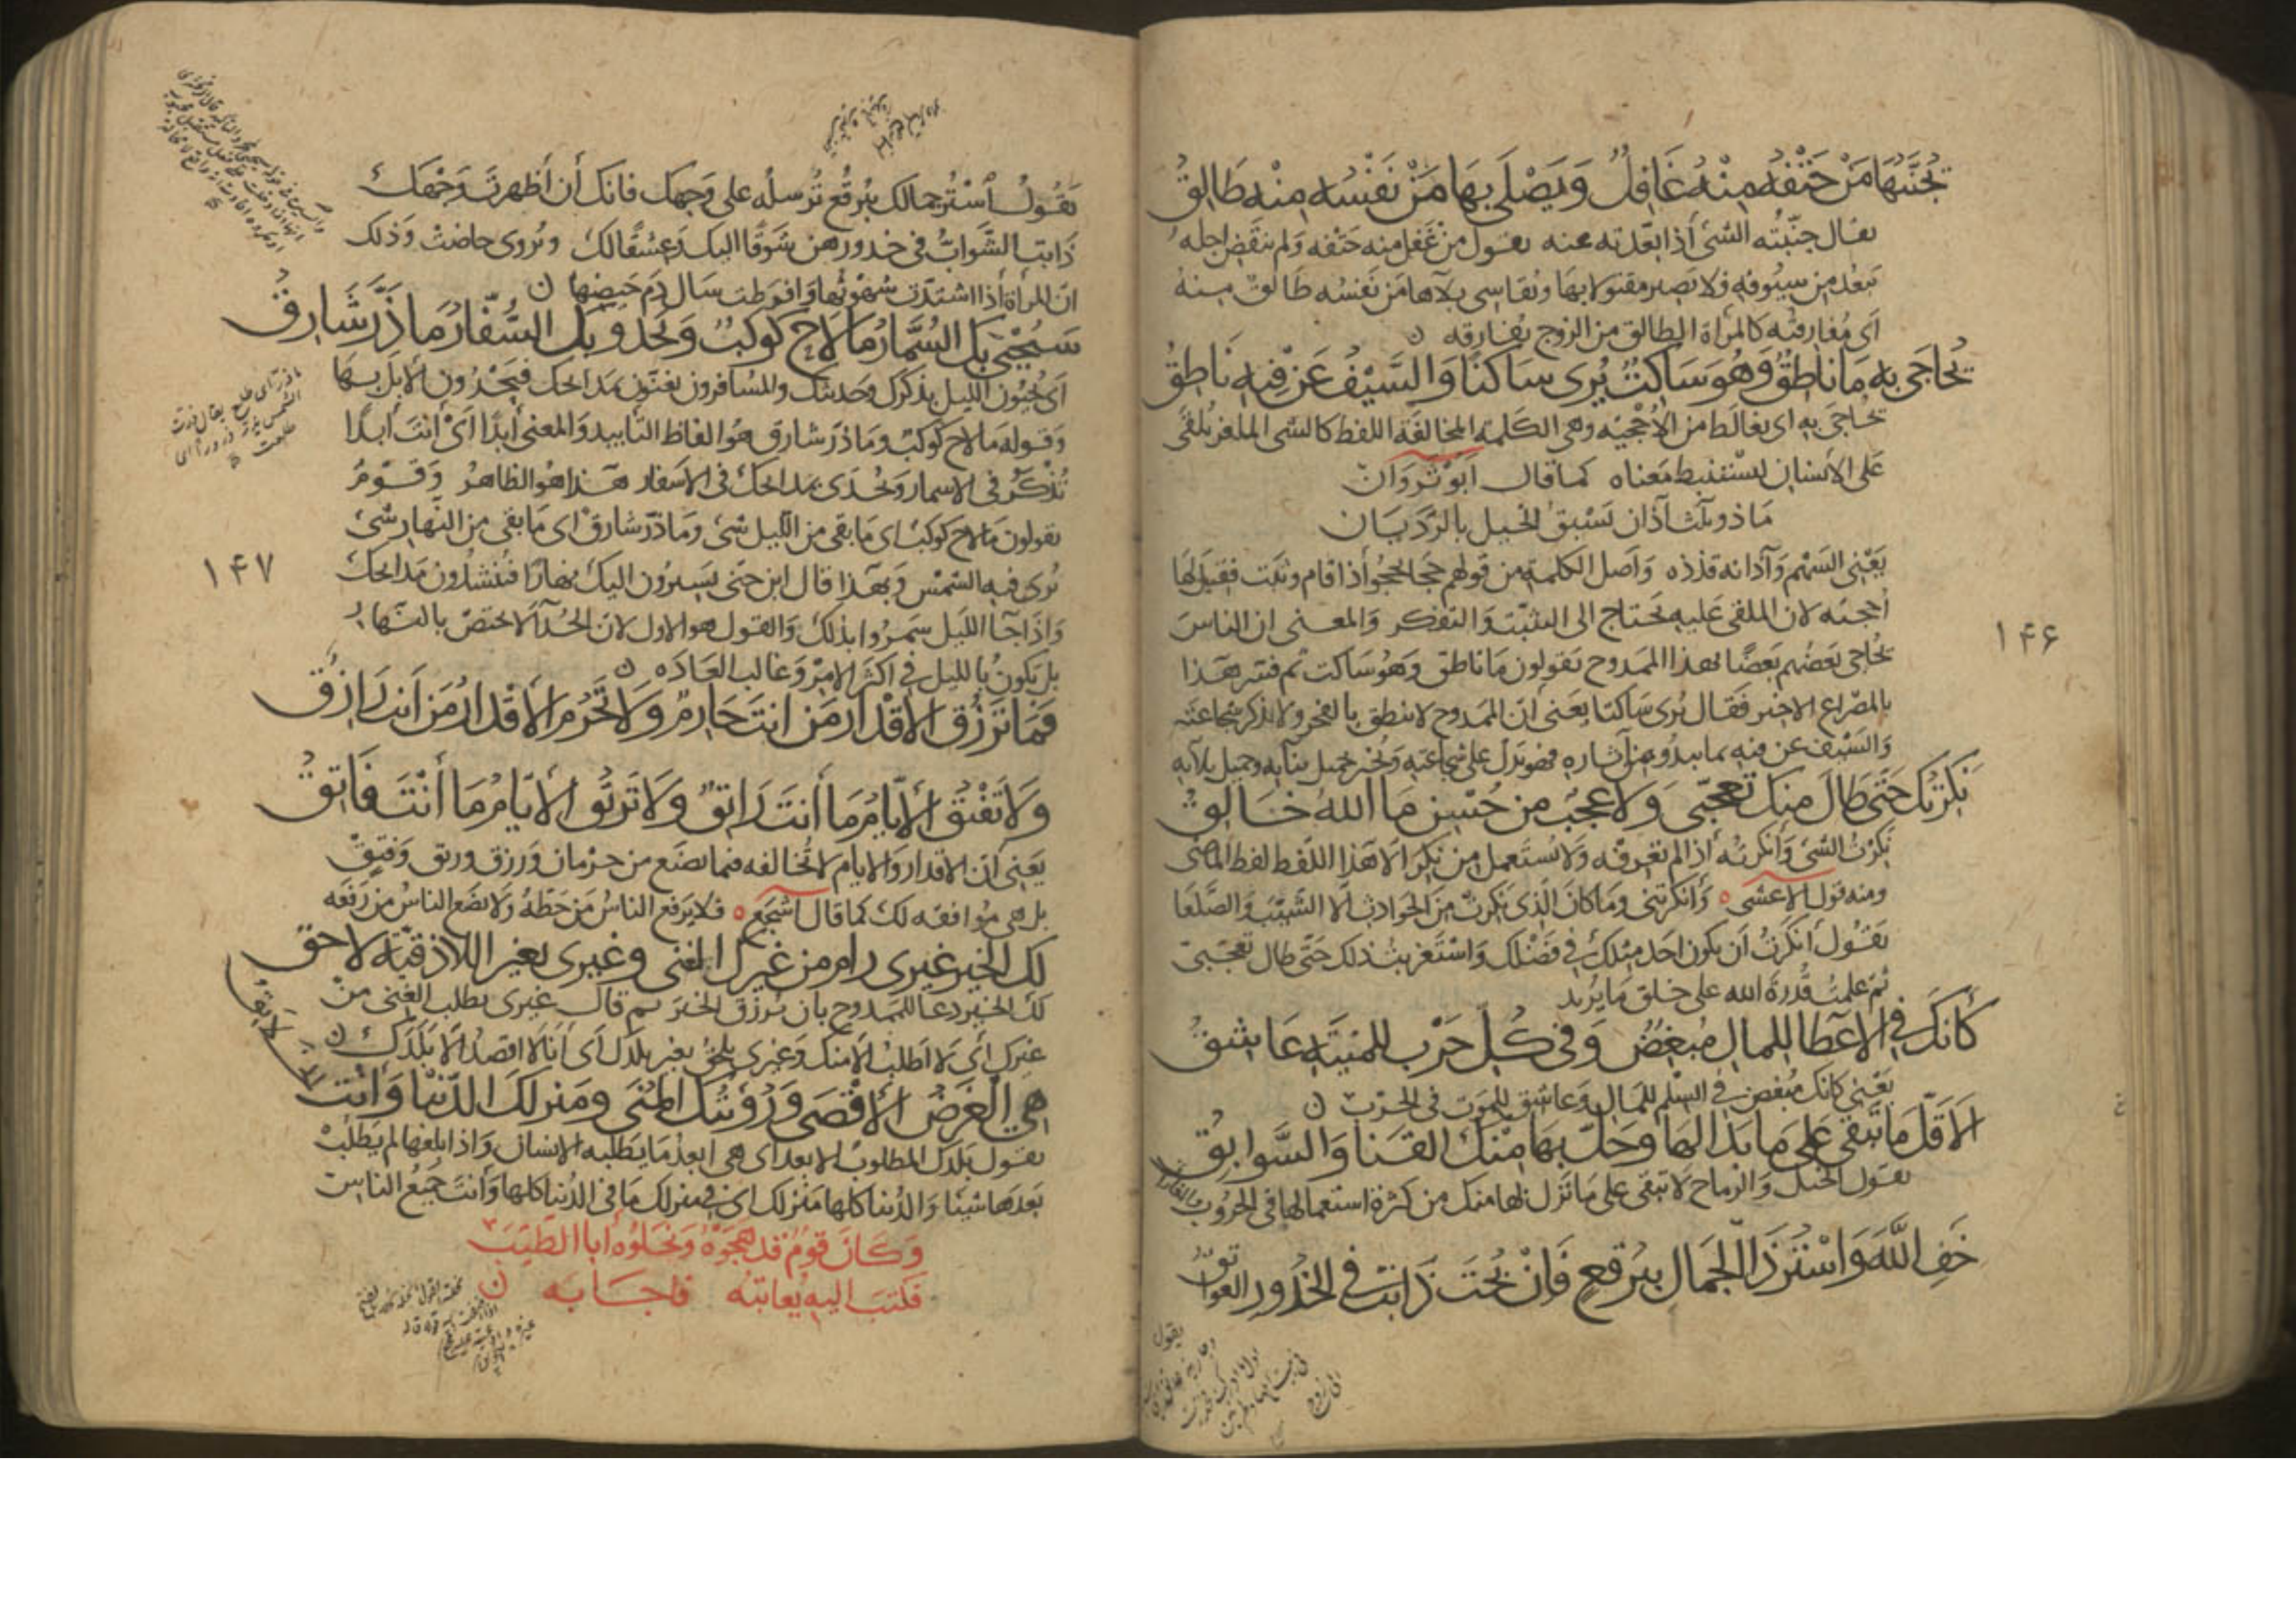 تُجَنَّبُهَا مَنْ حَتْفُهُ مِنْهُ غَافِلٌ وَيَصْلَى بِهَا مَنْ نَفْسُهُ مِنْهُ طَالِقُ
يقال جنّبته الشئ أذا بعّدته عنه يقول من غفل منه حتفه ولم ينقض اجله
تبعد من سيوفه فلا تصير مقتولا بها ويقاسى بلآها من نفسه طالق منه
اى مُفارقته كالمرأة الطالق من الزوج بفارقه ن
يُحَاجَى بِهِ مَا نَاطِقٌ وَهُوَ سَاكِتٌ يُرى سَاكتًا وَالسَّيْفُ عَنْ فِيهِ نَاطِقُ
يحاجى به اى يغالط من الأُحْجيّه وهى الكلمة المخالفة اللفظ كالشى الملغز يُلقى
على الأنسان ليستنبط معناه كما قال ابو ثروان
ما ذو ثلث آذان تسبق الخيل بالرّدَيان
يَعْنى السّهْم وآذانه قذذه وأصل الكلمة من قولهم حجا يحجو أذا قام وثبت فقيل لها
أحجية لان الملقى عليه يحتاج الى التثبّت والتفكر والمعنى ان الناس
يُحاجى بَعضُهم بَعضًا بهذا الممدوح يقولون ما ناطق وهُو ساكت ثم فسّر هذا
بالمصراع الاخير فقال يُرى ساكتا يعنى أنّ الممدوح لا ينطق بالفخر ولا يذكر شجاعته
والسّيف عن فيه بما يبدُو من آثاره فهو يدل على شجاعته ويُخبر جميل بنآيه وجميل بلآيه
نَكِرْتُكَ حَتَّى طَالَ مِنكَ تعجّبى وَلا عَجَبٌ من حُسْنِ مَا اللهُ خَالِقُ
نَكِرْتُ الشّى وَأنكرتُه أذا لم تعرفه ولا يُستعمل من نكر الا هَذا اللّفظ لفظ الماضى
ومنه قول الاعشى ه وَأنكرتنى وما كانَ الّذى نكرتْ من الحوادث الّا الشّيبَ والصَّلَعا
يَقُول أنكرتُ اَن يكون احَد مثلكَ فى فضْلك واسْتَغربتُ ذلك حَتّى طال تعجّبى
ثمّ علمتُ قُدرة الله على خلق ما يُريد
كَأَنكَ فِى الاعْطا لِلمالِ مُبغِضٌ وَفِى كُلِّ حَرْبٍ للمَنِيَّةِ عَاشِقُ
يَعْنى كانك مُبغض فى السّلم للمال وَعاشق للموت فى الحرب ن
اَلا قَلَّ مَا تَبقَى عَلَى مَا بَدَا لَهَا وَحَلَّ بِهَا مِنكَ القَنَا وَالسَّوابِقُ
يقول الخيل والرماح لا تبقى على ما تزل بها منك من كثرة استعمالها فى الحُروب والغارات
خَفِ اللَّهَ وَاسْتُرْ ذَا الْجَمَالَ بِبُرقعٍ فَانْ لُحْتَ ذَابَتْ فِى الخُدُورِ العَوَاتِقُ
۱۴۶
يَقُولُ اُسْتُر جمالك ببُرقُع تُرسله على وَجهك فانك أن أظهرتَ وَجْهَكَ
ذَابَت الشَّوابُّ فى خدورهن شوقًا اليكَ وَعِشْقًا لكَ ويُروى حاضتْ وَذلك
انّ المرأة أذا اشتدّت شهوتُها وَافرطت سَال دَم حَيضها ن
سَيُحْيِى بِكَ السُّمَّارُ مَا لاحَ كَوكَبٌ وَيَحْدُو بِكَ السُّفَّارُ مَا ذَرَّ شَارِقُ
أى يُحيُون الليل بذكرك وحديثك والمسافرون يغنّون بمدايحك فيَحْدُون الابل بها
وَقوله ما لاح كوكبٌ وما ذرّ شارق هُو الفاظ التأبيد والمعنى أبدًا أىْ أنتَ أبدًا
تُذْكرُ فى الاسمار ويُحْدَى بمدايحكَ فى الاسفار هَذا هُو الظاهرُ وَقَوْمٌ
يقولون ما لاح كوكبٌ اى ما بقى من الّليل شئ وَما ذرّ شارقٌ اى ما بقى من النّهار شئ
تُرى فيه الشمْس وَبهذا قال ابن جنى يَسيرُون اليكَ نهارًا فيُنشدُون مَدايحك
وَاذا جآ الليل سَمَرُوا بذلكَ وَالقول هو الاول لان الحُدآ لا يختصّ بالنّهار
بل يكونُ بالليل فى اكثر الامر وَغالب العَادَه ن
فَمَا تَرْزُقُ الأَقْدارُ مَن انتَ حَارِمٌ وَلاَ تَحْرُمِ الأَقْدارُ مَنْ اَنتَ رَازِقُ
وَلا تَفْتُقُ الأَيّامُ مَا أَنتَ رَاتِقٌ وَلا تَرتُقُ الأَيّامُ مَا أَنْتَ فَاتِقُ
يَعنى أن الاقدار وَالايام لا تُخالفه فيما يصنَع من حِرْمان وَرزق ورتق وفتق
بل هى مُوافقة لكَ كما قال اشجع ه فلا يَرفع الناسُ مَن حَطّهُ وَلا يضَع الناسُ من رَفعَه
لكَ الخيرُ غيرى رامَ من غيركَ الغنى وغيرى بغير اللاذقيّة لاحقُ
لكَ الخير دعا للممدوح بان يُرزق الخير ثم قالَ غيرى يطلب الغنى منْ
غيركَ أى لا اطلبُ الّا منك وَغيرى يلحق بغير بلدك أى أنَا لا اقصدُ الّا بلَدَكَ ن
هِىَ الْغَرَضُ الأَقْصَى وَرُؤيَتُكَ المُنَى ومَنزِلُكَ الدّنيْا وَأَنْتَ الخلايقُ
يقول بلدك المطلوبُ الابعد اى هى ابعدُ ما يطلبه الانسان وَاذا بلغها لم يَطلبْ
بَعدَها شيئا وَالدُّنيا كلها منزلك اى فى منزلك مَا فى الدُّنيا كلها وَأنتَ جميعُ الناس
وَكَانَ قومٌ قد هجَوْهُ ونحلوُهُ أبا الطّيّبَ
فكتبَ اليه يعاتبُه فاجابه ن
ما ذرّ أى طلع يقال ذرت
الشمس
طلعت
۱۴۷